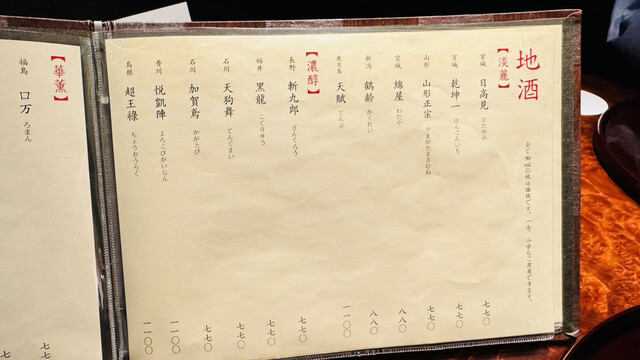 地酒
全て90mlの税込価格です。一合、二合もご用意できます。
【淡麗】
宮城 日高見 ひたかみ 七七〇
宮城 乾坤一 けんこんいち 七七〇
山形 山形正宗 やまがたまさむね 七七〇
宮城 綿屋 わたや 八八〇
新潟 鶴齢 かくれい 八八〇
鹿児島 天賦 てんぶ 一一〇〇
【濃醇】
長野 斬九郎 ざんくろう 七七〇
福井 黒龍 こくりゅう 七七〇
石川 天狗舞 てんぐまい 七七〇
石川 加賀鳶 かがとび 七七〇
香川 悦凱陣 よろこびがいじん 一一〇〇
島根 超王祿 ちょうおうろく 一一〇〇
【華薫】
福島 口万 ろまん 七七〇